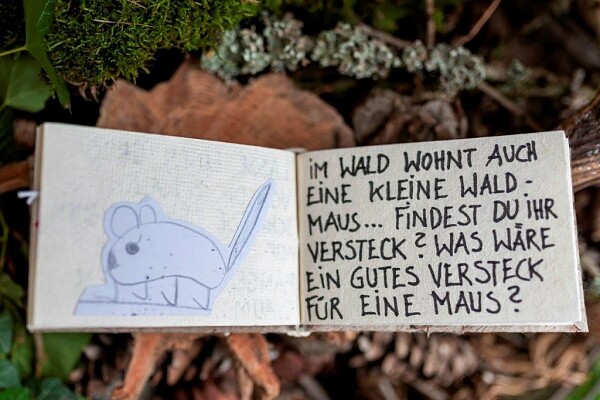 iM WALD WOHNT AUCH
EINE KLEINE WALD-
MAUS... FINDEST DU IHR
VERSTECK? WAS WÄRE
EIN GUTES VERSTECK
FÜR EINE MAUS?